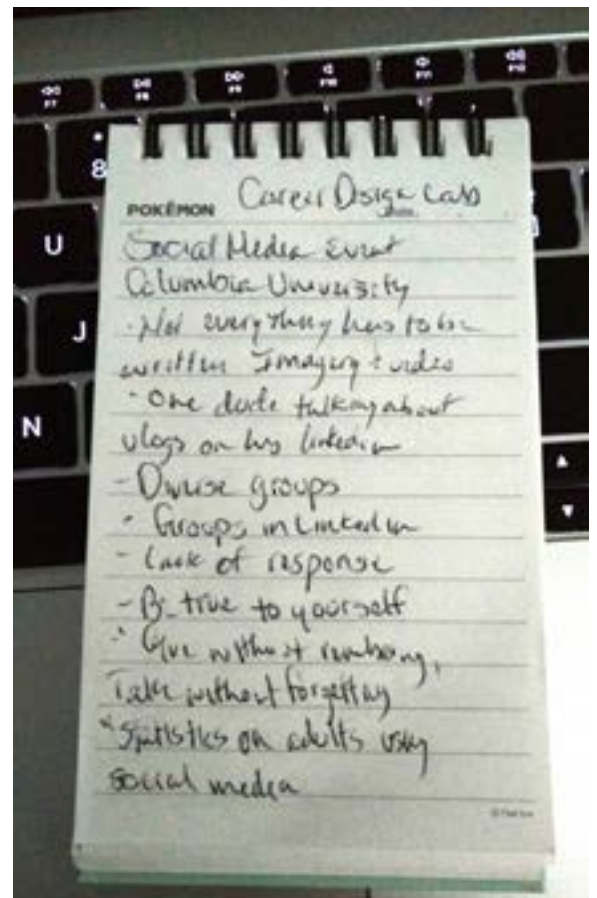 F7 F8 F9 F10 F11 F12
* 8
U
J
N
POKÉMON Career Design Lab
Social Media Event
Columbia University
· Not everything has to be
written Imagery + video
· One dude talking about
vlogs on his linkedin
- Diverse groups
· Groups in Linkedin
- Lack of response
- Be true to yourself
· Give without
Take without forgetting
* Statistics on adults using
social media